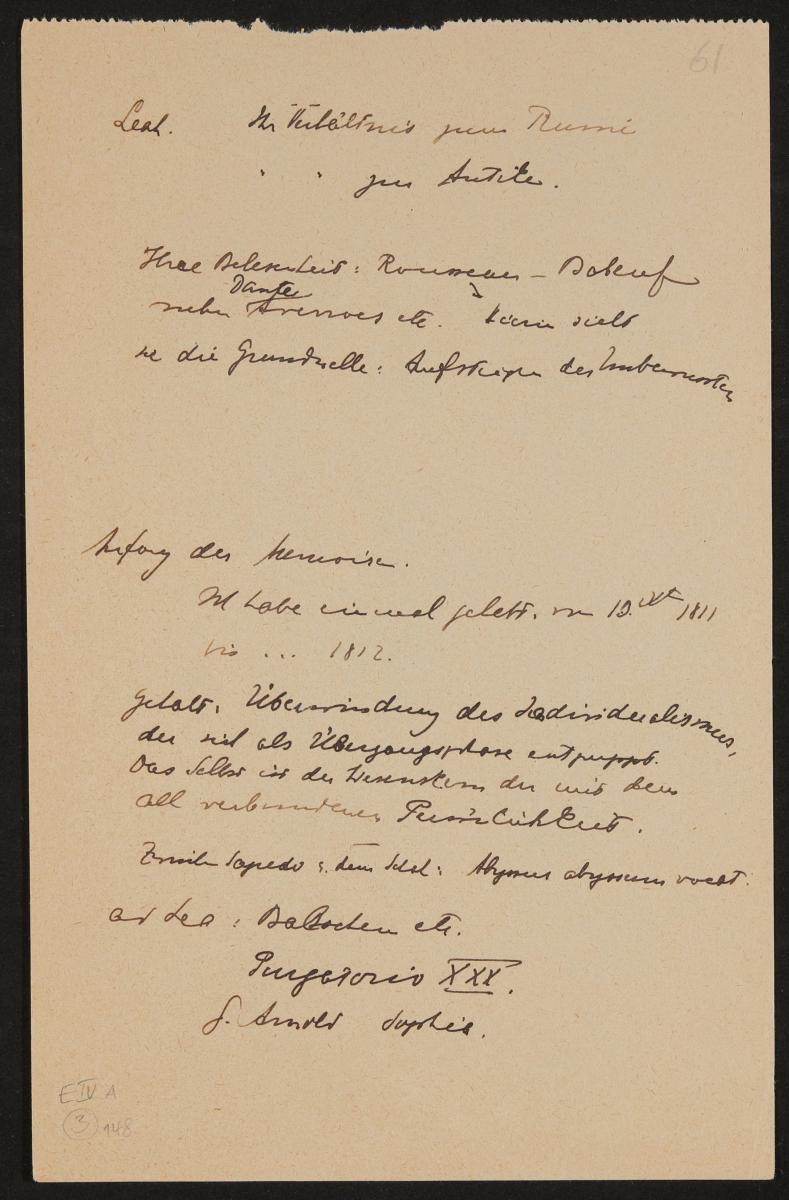 61
Leah. Ihr Verhältnis zum
" " zur Antike.
Ihre Belesenheit: Rousseau – Babeuf
Dante
neben Averroes etc. hielt
sie die Grundwelle: Aufsteigen des Unbewussten
Anfang der Memoiren.
Ich habe einmal gelebt. vom 19. Okt 1811
bis ... 1812.
Gehalt. Überwindung des Individualismus,
der sich als Übergangsphase entpuppt.
Das Selbst ist der Wesenskern der mit dem
All verbundenen Persönlichkeit.
Abyssus abyssum vocat.
ad Lea: etc.
Purgatorio XXX.
S. Arnold Sophie.
E IV A
3 148